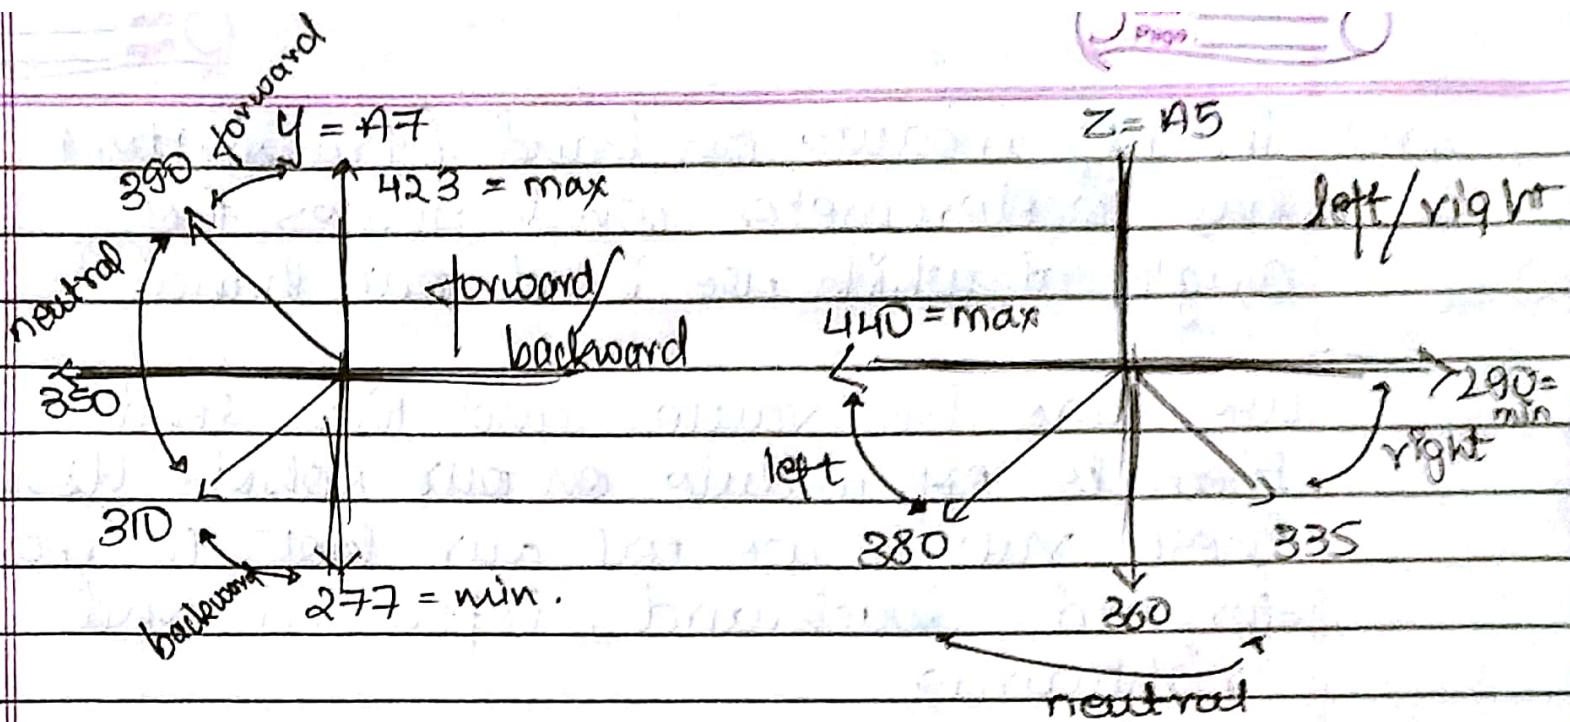 Page
forward
Y = A7
390
423 = max
neutral
forward/
backward
350
310
backward
277 = min.
Z = A5
left/right
440 = max
290 =
min
left
right
380
335
360
neutral